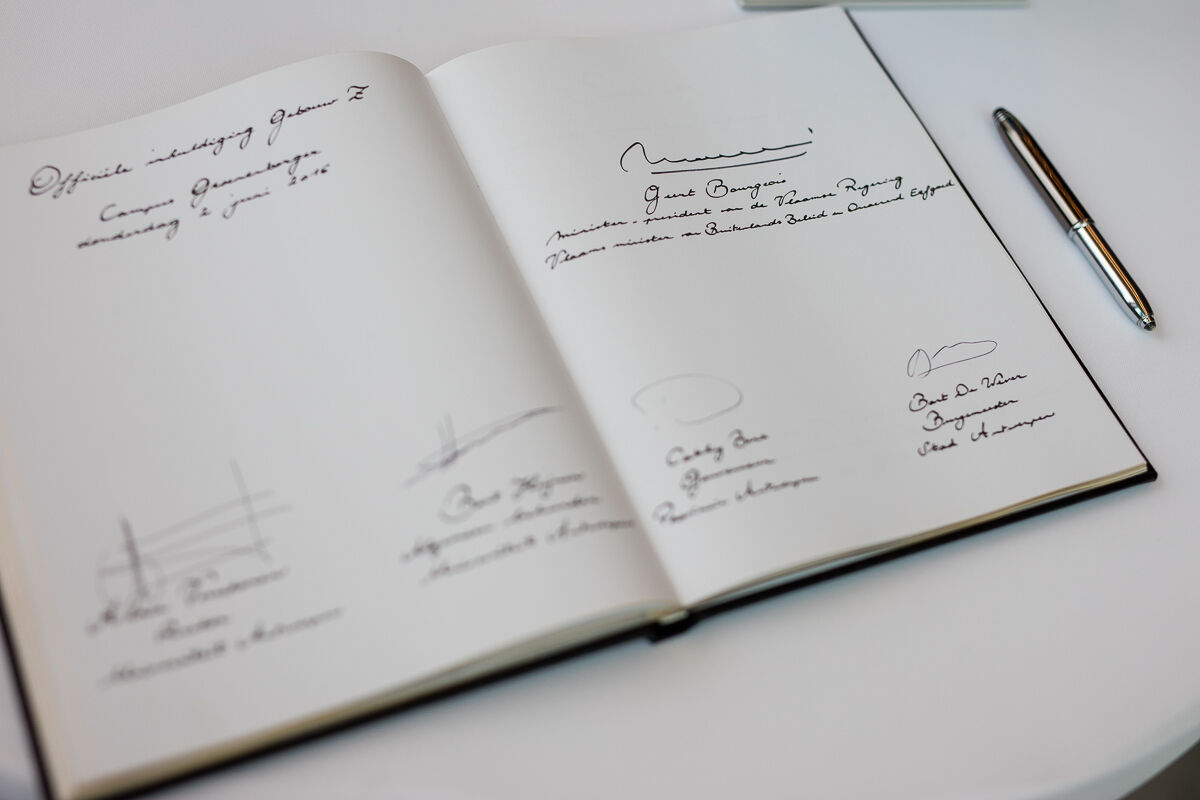 Officiële inhuldiging Gebouw Z
Campus Groenenborger
donderdag 2 juni 2016
Geert Bourgeois
Minister-president van de Vlaamse Regering
Vlaams minister van Buitenlands Beleid en Onroerend Erfgoed
Bart Heijnen
Algemeen beheerder
Universiteit Antwerpen
Alain Verschoren
Rector
Universiteit Antwerpen
Cathy Berx
Gouverneur
Provincie Antwerpen
Bart De Wever
Burgemeester
Stad Antwerpen